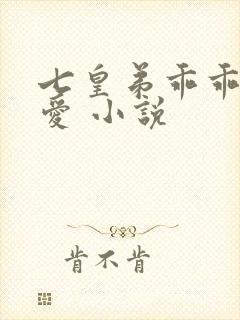 七皇弟乖乖
愛 小說
肯不肯